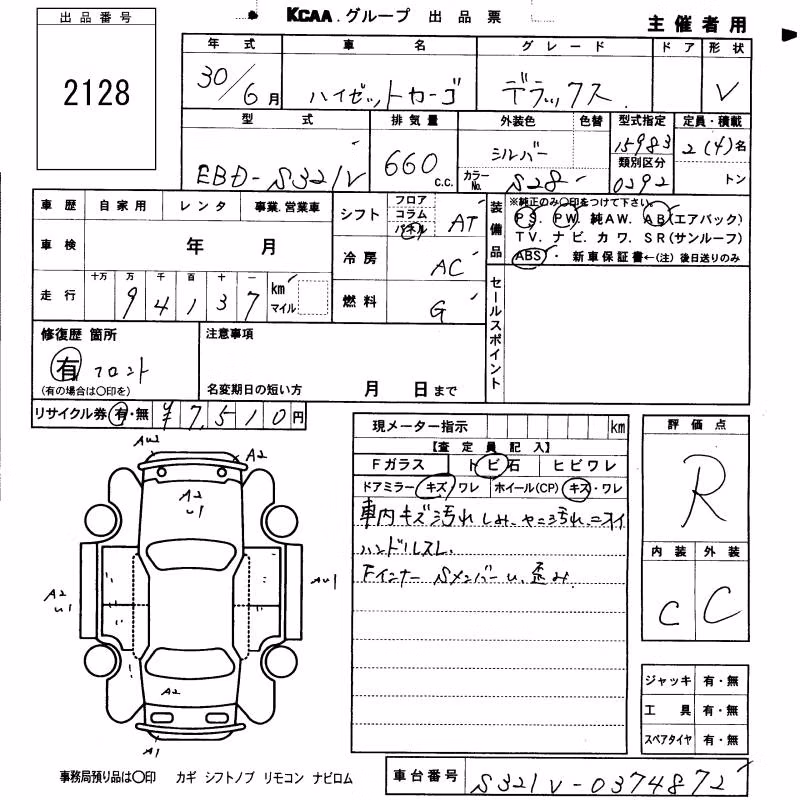 KCAA グループ 出品票
主催者用
出品番号
2128
年式 車名 グレード ドア 形状
30/6月 ハイゼットカーゴ デラックス V
型式 排気量 外装色 色替 型式指定 定員・積載
EBD-S321V 660 c.c. シルバー 15983 2(4)名
カラーNo. S28 類別区分 0292 トン
車歴 自家用 レンタ 事業.営業車
車検 年 月
走行 十万 万 千 百 十 一
94137 km マイル
シフト フロア コラム パネル AT
冷房 AC
燃料 G
装備品
※純正のみ〇印をつけて下さい。
PS. PW. 純AW. AB(エアバック)
TV. ナビ. カワ. SR(サンルーフ)
ABS・ 新車保証書←(注) 後日送りのみ
セールスポイント
修復歴 箇所
有 フロント
(有の場合は〇印を)
注意事項
名変期日の短い方 月 日まで
リサイクル券 有・無 ¥7,510円
現メーター指示 km
【査定員記入】
Fガラス トビ石 ヒビワレ
ドアミラー キズ/ワレ ホイール(CP) キズ・ワレ
車内キズ汚れしみ、ヤニ汚れ、ニオイ
ハンドルスレ.
Fインナー SメンバーU.歪み
評価点
R
内装 外装
C C
ジャッキ 有・無
工具 有・無
スペアタイヤ 有・無
A2
A2
U1
A2
U1
A2
A1
事務局預り品は〇印 カギ シフトノブ リモコン ナビロム
車台番号 S321V-0374872